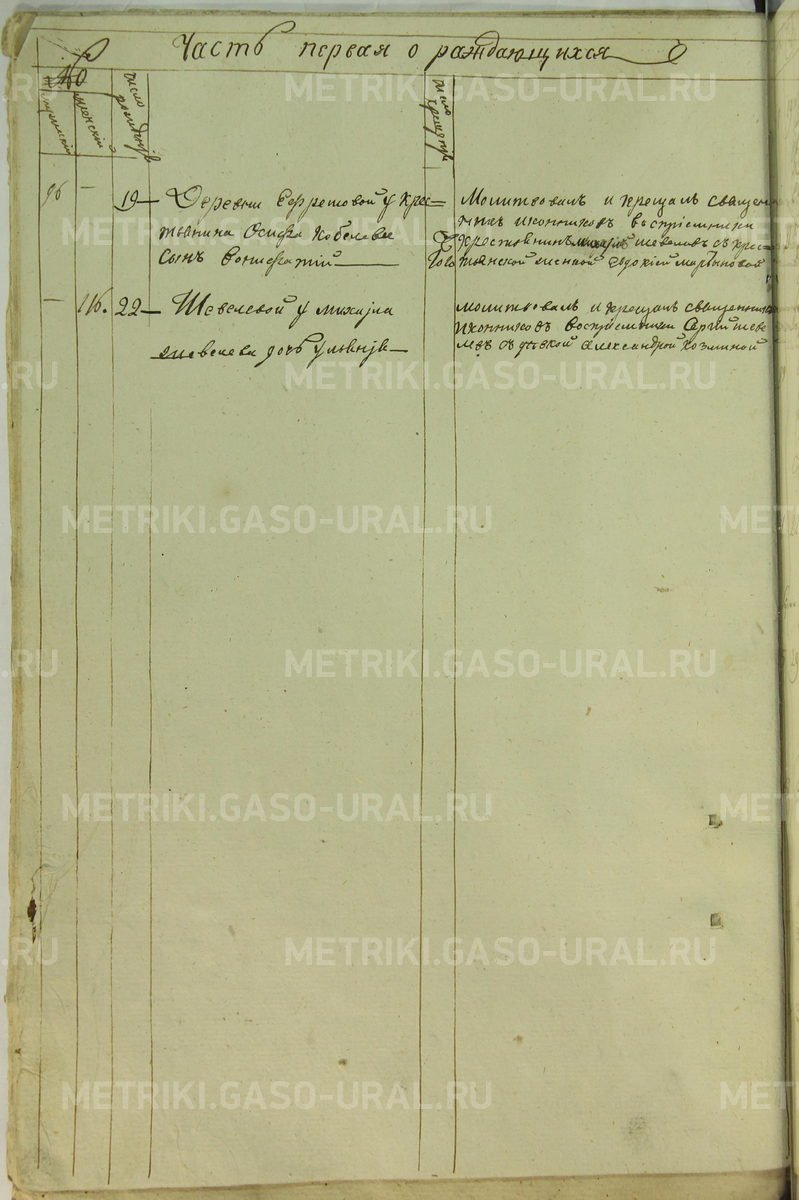 Часть первая о раждающихся
№
мужескій
женскій
число рожденія
число крещенія
96 — 19 — Деревни Ефремовой у крес=
тьянина Осипа Кобелева
сынъ Вонифатий
Молитвовалъ и крещалъ священ
никъ Иконниковъ восприемники
крестьянинъ Шевелевъ съ крес
тьянской женкой Евдокіей Мартыновой
— 116. 22 — Шевелевой у Михайла
Шевелева дочь Ульянія —
молитвовалъ и крещалъ священникъ
Иконниковъ восприемники Сергій Шеве
левъ съ девкой Александрой Козминой
METRIKI.GASO-URAL.RU